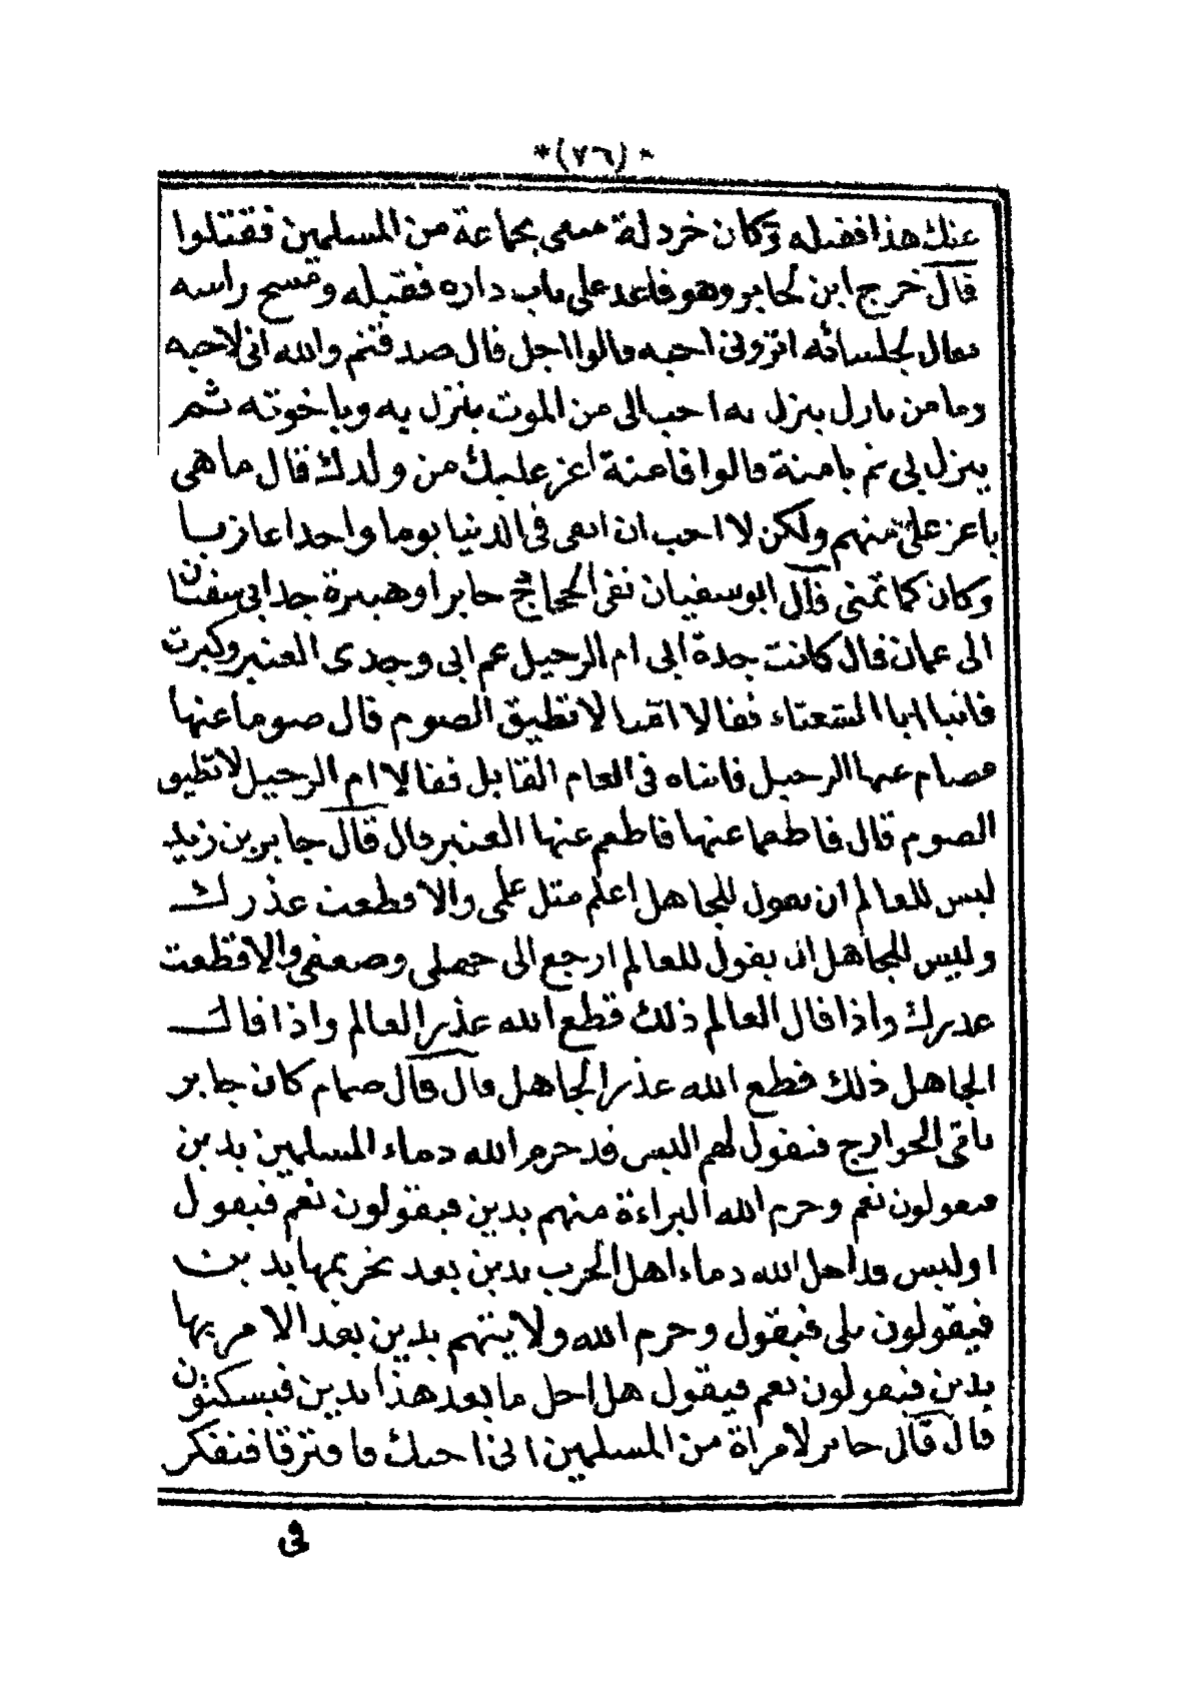 *(٧٦)*
عنك هذا فقتله وكان خردلة سعى بجماعة من المسلمين فقتلوا
قال خرج ابن لجابر وهو قاعد على باب داره فقبله ومسح راسه
فقال لجلسائه اتروني احبه قالوا اجل قال صدقتم والله اني لاحبه
وما من نازل ينزل به احب الى من الموت ينزل به وباخوته ثم
ينزل بي ثم بامنة قالوا فامنة اعز عليك من ولدك قال ما هى
باعز علىّ منهم ولكن لا احب ان ابقى فى الدنيا يوما واحدا عازبا
وكان كما تمنى قال ابو سفيان نفى الحجاج جابرا وهبيرة جد ابى سفيان
الى عمان قال كانت جدة ابى ام الرحيل عم ابى وجدى العنبر وكبرت
فاتيا ابا الشعثاء فقالا امنا لا تطيق الصوم قال صوما عنها
فصام عنها الرحيل فاتياه فى العام القابل فقالا ام الرحيل لا تطيق
الصوم قال فاطعما عنها فاطعم عنها العنبر قال قال جابر بن زيد
ليس للعالم ان يقول للجاهل اعلم مثل علمى والا قطعت عذرك
وليس للجاهل ان يقول للعالم ارجع الى جهلى وضعفى والا قطعت
عذرك واذا قال العالم ذلك قطع الله عذر العالم واذا قال
الجاهل ذلك قطع الله عذر الجاهل قال قال ضمام كان جابر
ياتى الخوارج فيقول لهم اليس قد حرم الله دماء المسلمين بدين
فيقولون نعم وحرم الله البراءة منهم بدين فيقولون نعم فيقول
اوليس قد احل الله دماء اهل الحرب بدين بعد تحريمها بدين
فيقولون بلى فيقول وحرم الله ولايتهم بدين بعد الامر بها
بدين فيقولون نعم فيقول هل احل ما بعد هذا بدين فيسكتون
قال قال جابر لامراة من المسلمين انى احبك فافترقا فتفكر
فى